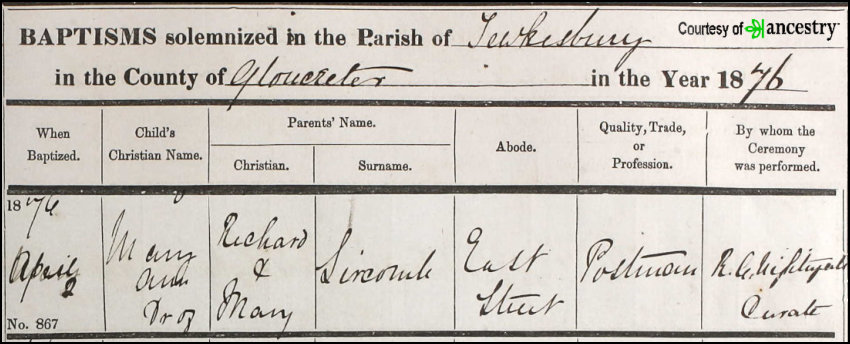 Courtesy of ancestry
BAPTISMS solemnized in the Parish of Tewkesbury
in the County of Gloucester in the Year 1876
When Baptized.
Child's Christian Name.
Parents' Name.
Christian.
Surname.
Abode.
Quality, Trade, or Profession.
By whom the Ceremony was performed.
1876
April 2
No. 867
Mary
Ann
Dr of
Richard
&
Mary
Sircomb
East
Street
Postman
R. G. Nightingale
Curate